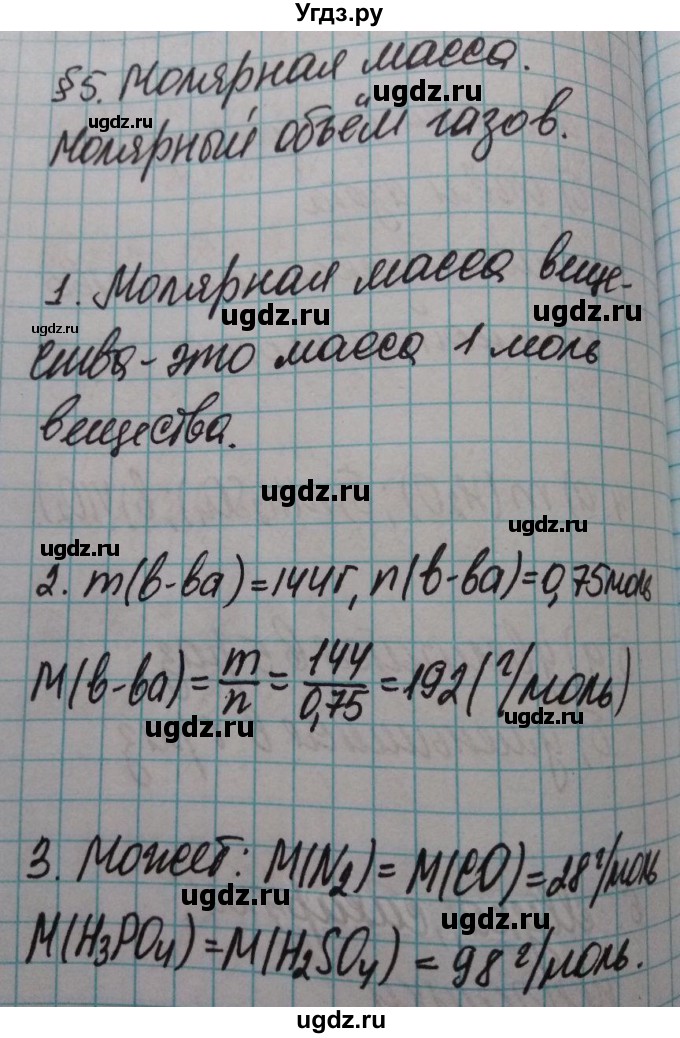 Угдз.ру
§5. Молярная масса.
ugdz.ru
ugdz.ru
Молярный объём газов.
1. Молярная масса веще-
ugdz.ru
ugdz.ru
ugdz.ru
ства - это масса 1 моль
вещества.
ugdz.ru
ugdz.ru
ugdz.ru
2. m(в-ва)=144г, n(в-ва)=0,75моль
M(в-ва)= m/n = 144/0,75 =192(г/моль)
ugdz.ru
ugdz.ru
3. Может: M(N₂)= M(CO)=28г/моль
ugdz.ru
ugdz.ru
M(H₃PO₄)=M(H₂SO₄) = 98 г/моль.
ugdz.ru
ugdz.ru
ugdz.ru